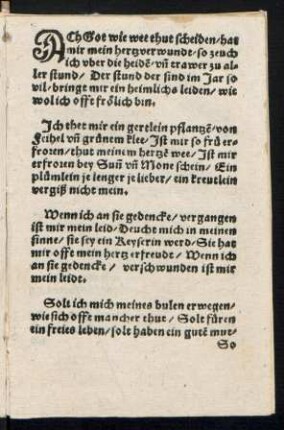 ACh Got wie wee thut scheiden/hat
mir mein hertz verwundt/so zeuch
ich vber die heidē/vñ trawer zu al-
ler stund/ Der stund der sind im Jar so
vil/bringt mir ein heimlichs leiden/ wie
wol ich offt frölich bin.
Ich thet mir ein gertlein pflantzē/von
Feihel vñ grünem klee/Ist mir so frü er-
froren/thut meinem hertzē wee/Ist mir
erfroren bey Suñ vñ Mone schein/ Ein
plümlein je lenger je lieber/ ein kreutlein
vergiß nicht mein.
Wenn ich an sie gedencke/ vergangen
ist mir mein leid/Deucht mich in meinen
sinne/ sie sey ein Keyserin werd/Sie hat
mir offt mein hertz erfreudt/ Wenn ich
an sie gedencke/ verschwunden ist mir
mein leidt.
Solt ich mich meines bulen erwegen/
wie sich offt mancher thut/ Solt füren
ein freies leben/solt haben ein gutē mut/
So